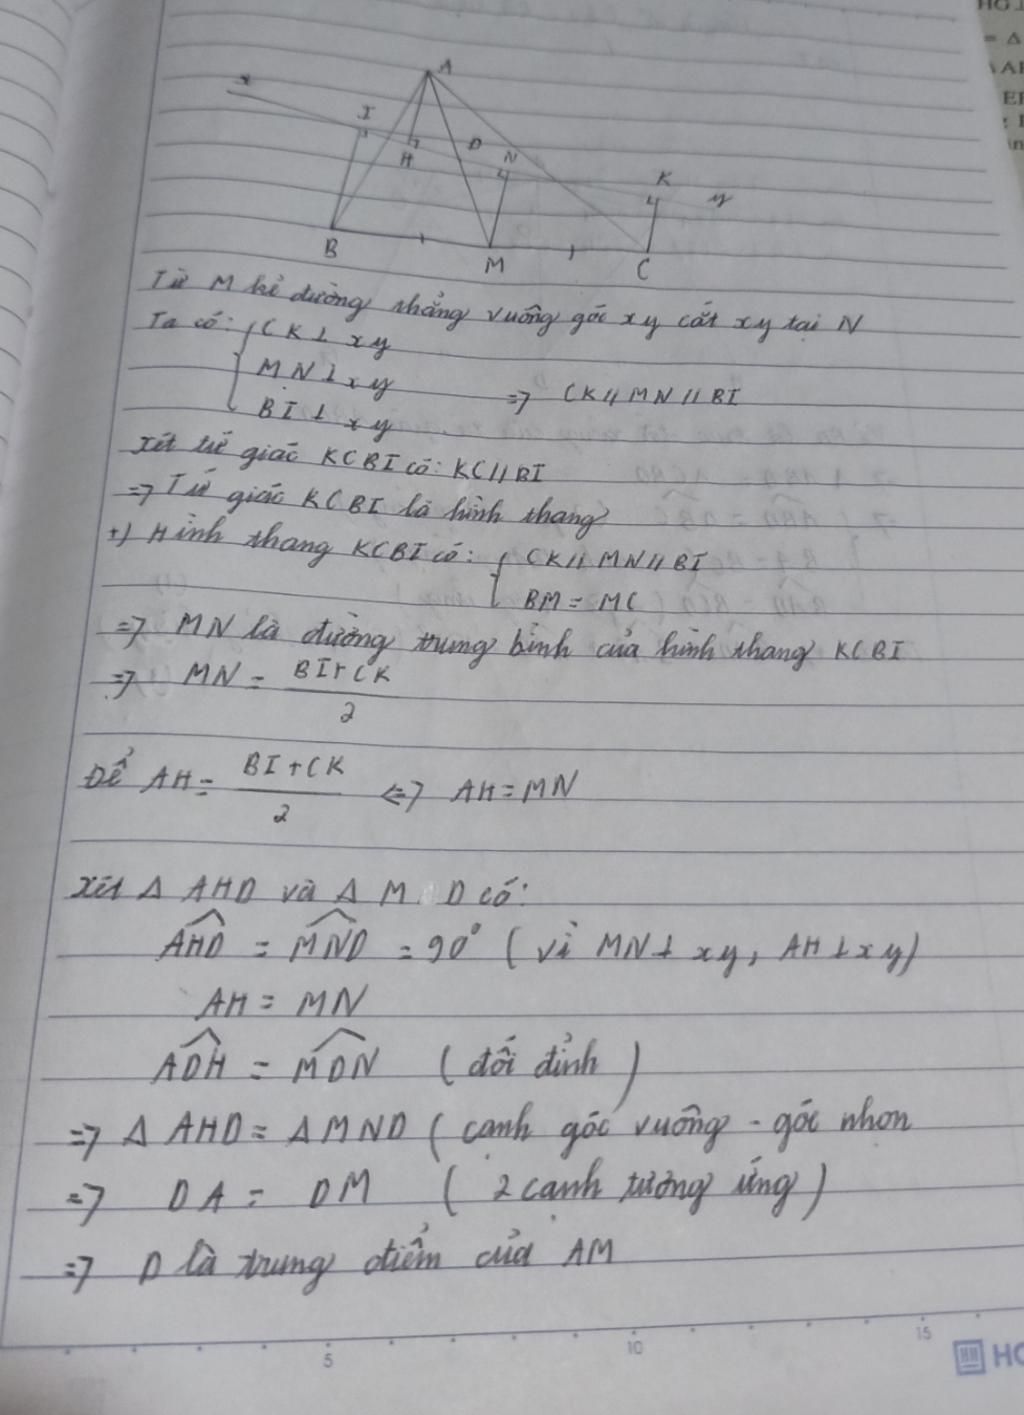 HG.1
= Δ
x
A
I
H
D
N
K
y
B
M
C
Từ M kẻ đường thẳng vuông góc xy cắt xy tại N
Ta có: { CK ⊥ xy
MN ⊥ xy => CK // MN // BI
BI ⊥ xy
Xét tứ giác KCBI có: KC // BI
=> Tứ giác KCBI là hình thang
+) Hình thang KCBI có: { CK // MN // BI
BM = MC
=> MN là đường trung bình của hình thang KCBI
=> MN = (BI + CK) / 2
Để AH = (BI + CK) / 2 <=> AH = MN
Xét Δ AHD và Δ M D có:
∠AHD = ∠MND = 90° ( vì MN ⊥ xy, AH ⊥ xy)
AH = MN
∠ADH = ∠MDN ( đối đỉnh )
=> Δ AHD = Δ MND ( cạnh góc vuông - góc nhọn
=> DA = DM ( 2 cạnh tương ứng )
=> D là trung điểm của AM
5 10 15
HO